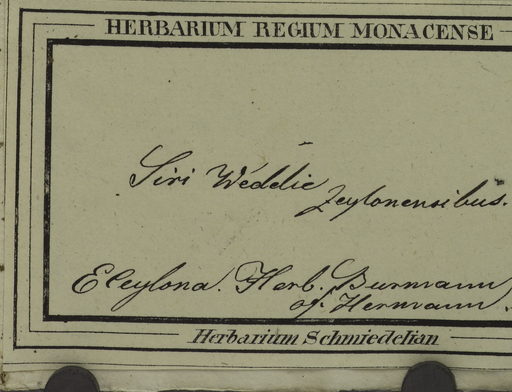 HERBARIUM REGIUM MONACENSE
Siri Weddie
zeylonensibus.
E Ceylona. Herb. Burmann
of. Hermann.
Herbarium Schmiedelian